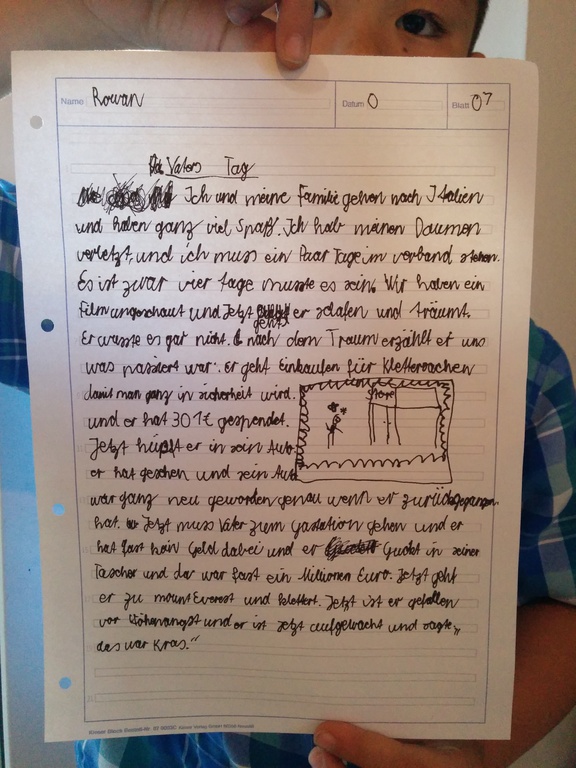 Name Rowan Datum 0 Blatt 07
Vaters Tag
Ich und meine Familie gehen nach Italien
und haben ganz viel Spaß. Ich hab meinen Daumen
verletzt, und ich muss ein Paar Tage im verband stehen.
Es ist zwar vier tage musste es sein. Wir haben ein
Film angeschaut und Jetzt geht er schlafen und träumt.
Er wusste es gar nicht. nach dem Traum erzählt er uns
was passiert war. Er geht Einkaufen für Klettersachen
damit man ganz in sicherheit wird.
und er hat 301€ gespendet.
Store
Jetzt hüpft er in sein Auto
er hat gesehen und sein Auto
war ganz neu geworden genau wenn er zurückgegangen
hat. Jetzt muss Vater zum Gastation gehen und er
hat fast kein Geld dabei und er Guckt in seiner
Tascher und da war fast ein Millionen Euro. Jetzt geht
er zu mount Everest und klettert. Jetzt ist er gefallen
vor Höhenangst und er ist Jetzt aufgewacht und sagte „
das war kras."